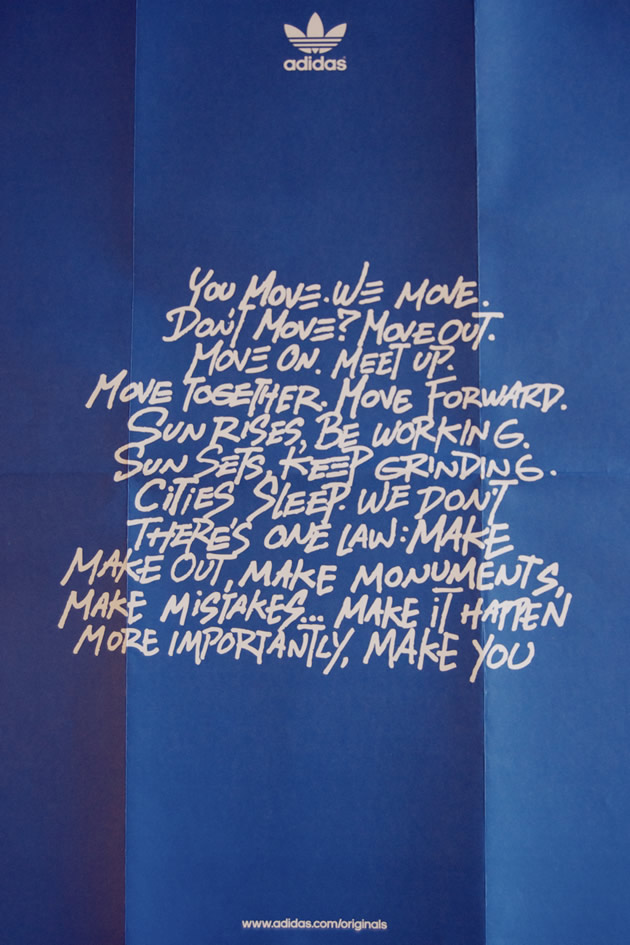 adidas
YOU MOVE. WE MOVE.
DON'T MOVE? MOVE OUT.
MOVE ON. MEET UP.
MOVE TOGETHER. MOVE FORWARD.
SUN RISES, BE WORKING.
SUN SETS, KEEP GRINDING.
CITIES SLEEP. WE DON'T
THERE'S ONE LAW: MAKE
MAKE OUT, MAKE MONUMENTS,
MAKE MISTAKES... MAKE IT HAPPEN
MORE IMPORTANTLY, MAKE YOU
www.adidas.com/originals